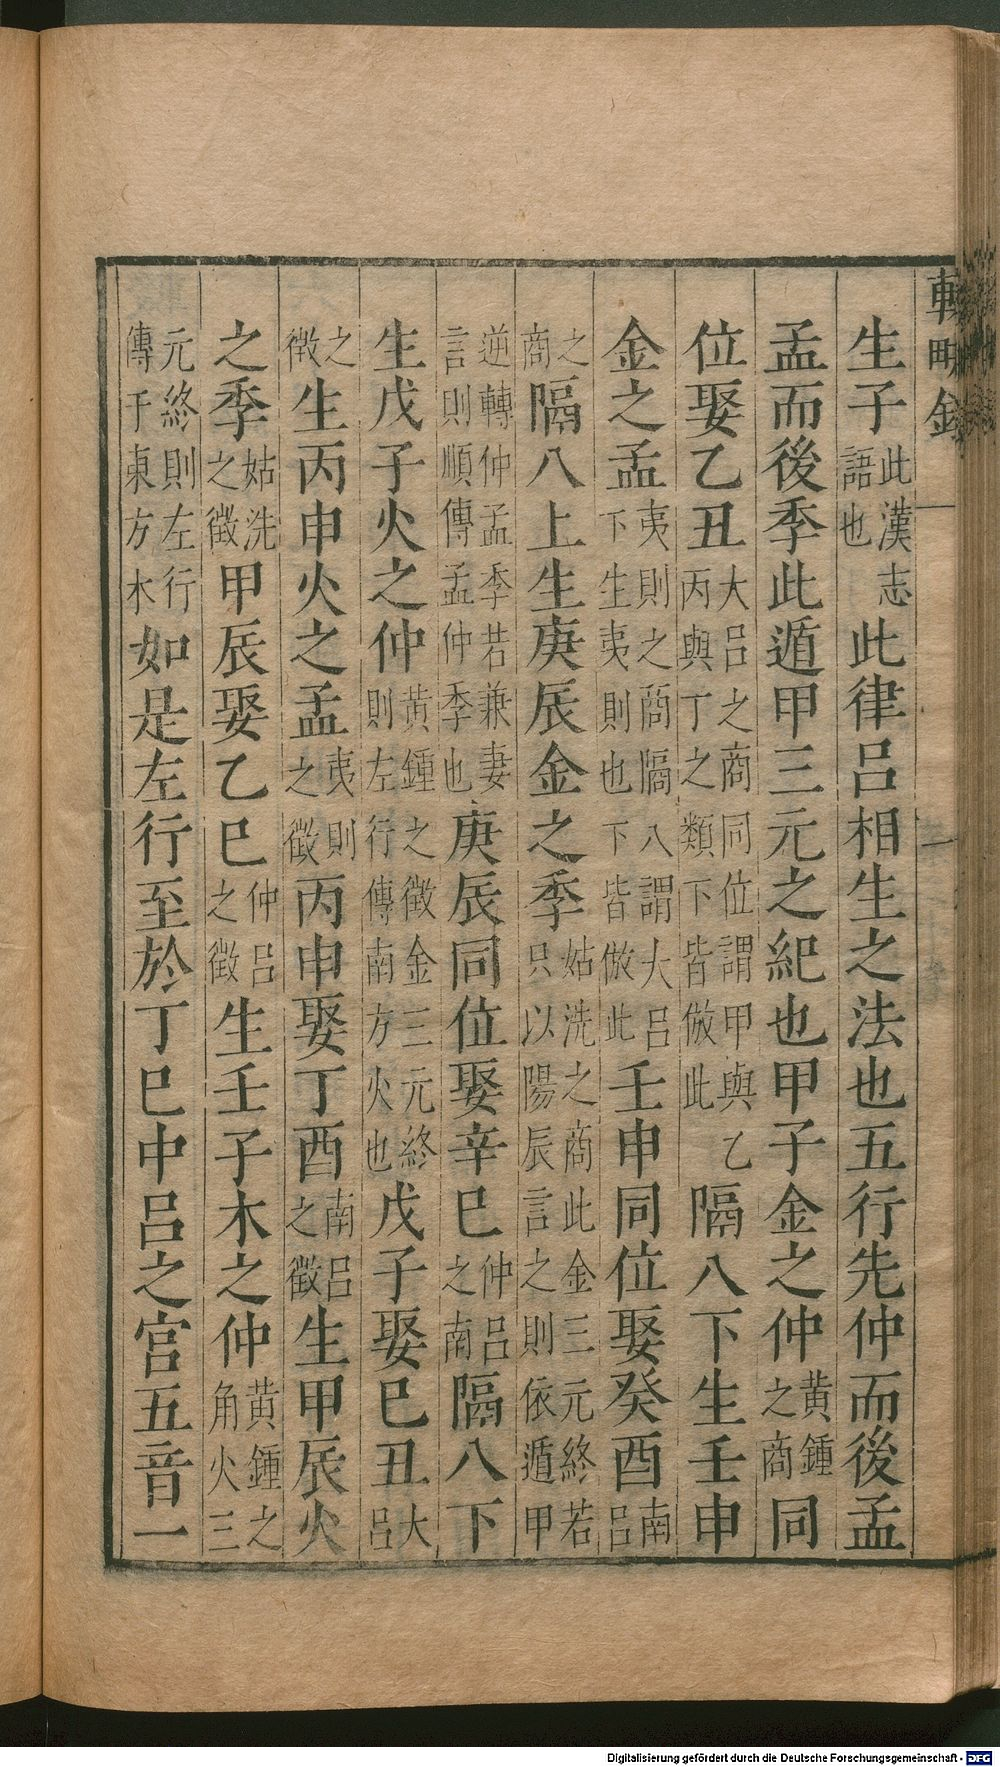 輟畊錄 一
生子此漢志語也此律呂相生之法也五行先仲而後孟
孟而後季此遁甲三元之紀也甲子金之仲黃鍾之商同
位娶乙丑大呂之商同位謂甲與乙丙與丁之類下皆倣此隔八下生壬申
金之孟夷則之商隔八謂大呂下生夷則也下皆倣此壬申同位娶癸酉南呂
之商隔八上生庚辰金之季姑洗之商此金三元終若只以陽辰言之則依遁甲
逆轉仲孟季若兼妻言則順傳孟仲季也庚辰同位娶辛巳仲呂之南隔八下
生戊子火之仲黃鍾之徵金三元終則左行傳南方火也戊子娶巳丑大呂
之徵生丙申火之孟夷則之徵丙申娶丁酉南呂之徵生甲辰火
之季姑洗之徵甲辰娶乙巳仲呂之徵生壬子木之仲黃鍾之角火三
元終則左行傳于東方木如是左行至於丁巳中呂之宮五音一
Digitalisierung gefördert durch die Deutsche Forschungsgemeinschaft - DFG